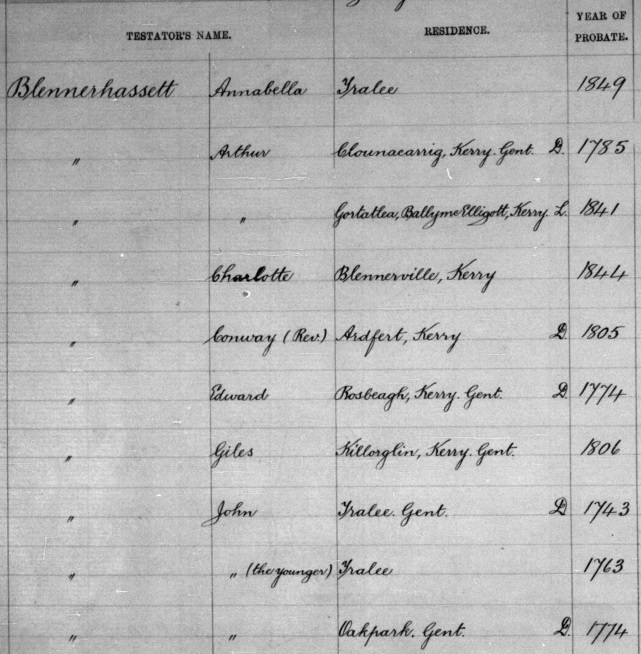 TESTATOR'S NAME. RESIDENCE. YEAR OF PROBATE.
Blennerhassett Annabella Tralee 1849
" Arthur Clounacarrig, Kerry. Gent. D. 1785
" " Gortatlea, BallymcElligott, Kerry. L. 1841
" Charlotte Blennerville, Kerry 1844
" Conway (Rev.) Ardfert, Kerry D. 1805
" Edward Rosbeagh, Kerry. Gent. D. 1774
" Giles Killorglin, Kerry. Gent. 1806
" John Tralee. Gent. D 1743
" " (the younger) Tralee 1763
" " Oakpark. Gent. D. 1774